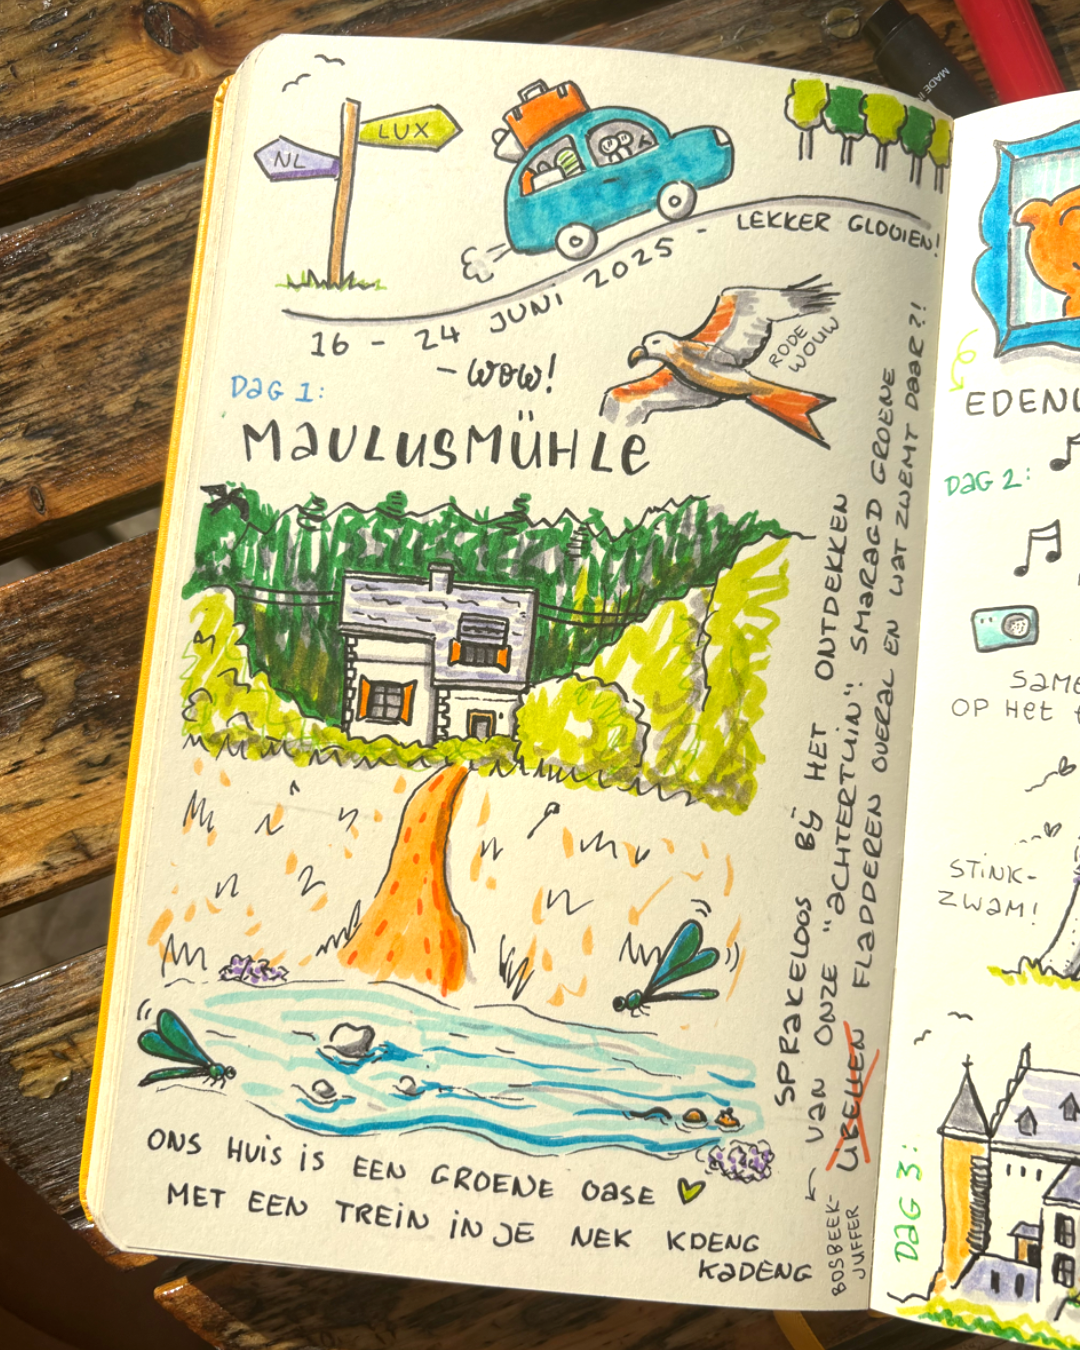 LUX
NL
16 - 24 JUNI 2025 - LEKKER GLOOIEN!
- WOW!
RODE
WOUW
DAG 1:
MAULUSMÜHLE
SPRAKELOOS BIJ HET ONTDEKKEN
VAN ONZE "ACHTERTUIN": SMARAGD GROENE
LIBELLEN FLADDEREN OVERAL EN WAT ZWEMT DAAR?!
BOSBEEK-
JUFFER
ONS HUIS IS EEN GROENE OASE
MET EEN TREIN IN JE NEK KDENG
KADENG
MADE IN
DAG 2:
OP HET
STINK-
ZWAM!
DAG 3: